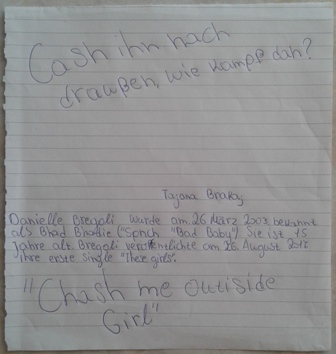 Cash ihn nach
draußen, wie kampf dah?
Tajana
Danielle Bregoli wurde am 26 März 2003 bekannt
als Bhad Bhabie ("Sprich "Bad Baby"). Sie ist 15
Jahre alt. Bregoli veröffentlichte am 26. August 2017
ihre erste Single "These girls".
"Chash me outiside
Girl"